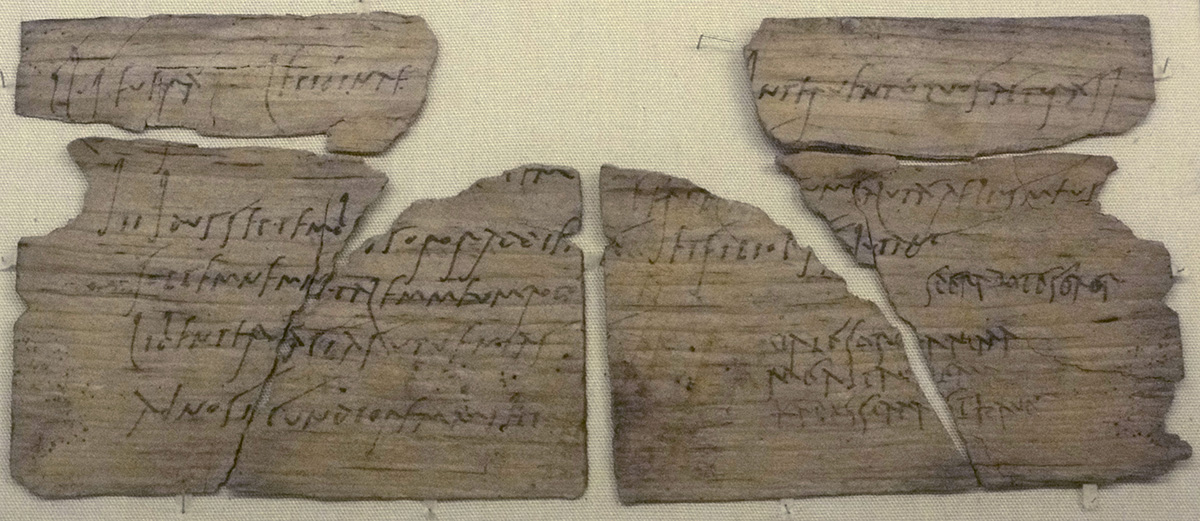 Cl Seuerá Lepidinae
iii Idus Septembr s soror ad diem
sollemnem natalem meum rogó
libenter faciás ut uenias
ad nos iucundiorem mihi
interuentú tuo facturá si
Cerial uum salutá Aelius meus
et filiolus salutant
sperabo te soror
uale soror anima
mea ita ualeam
karissima et haue